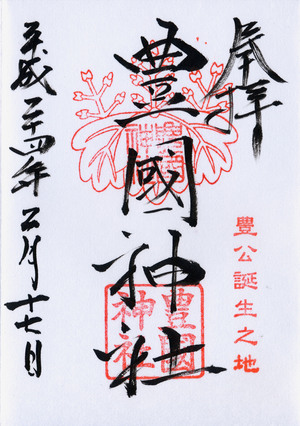 奉拝
豊公誕生之地
豊國神社
豊國
神社
平成二十四年三月十七日